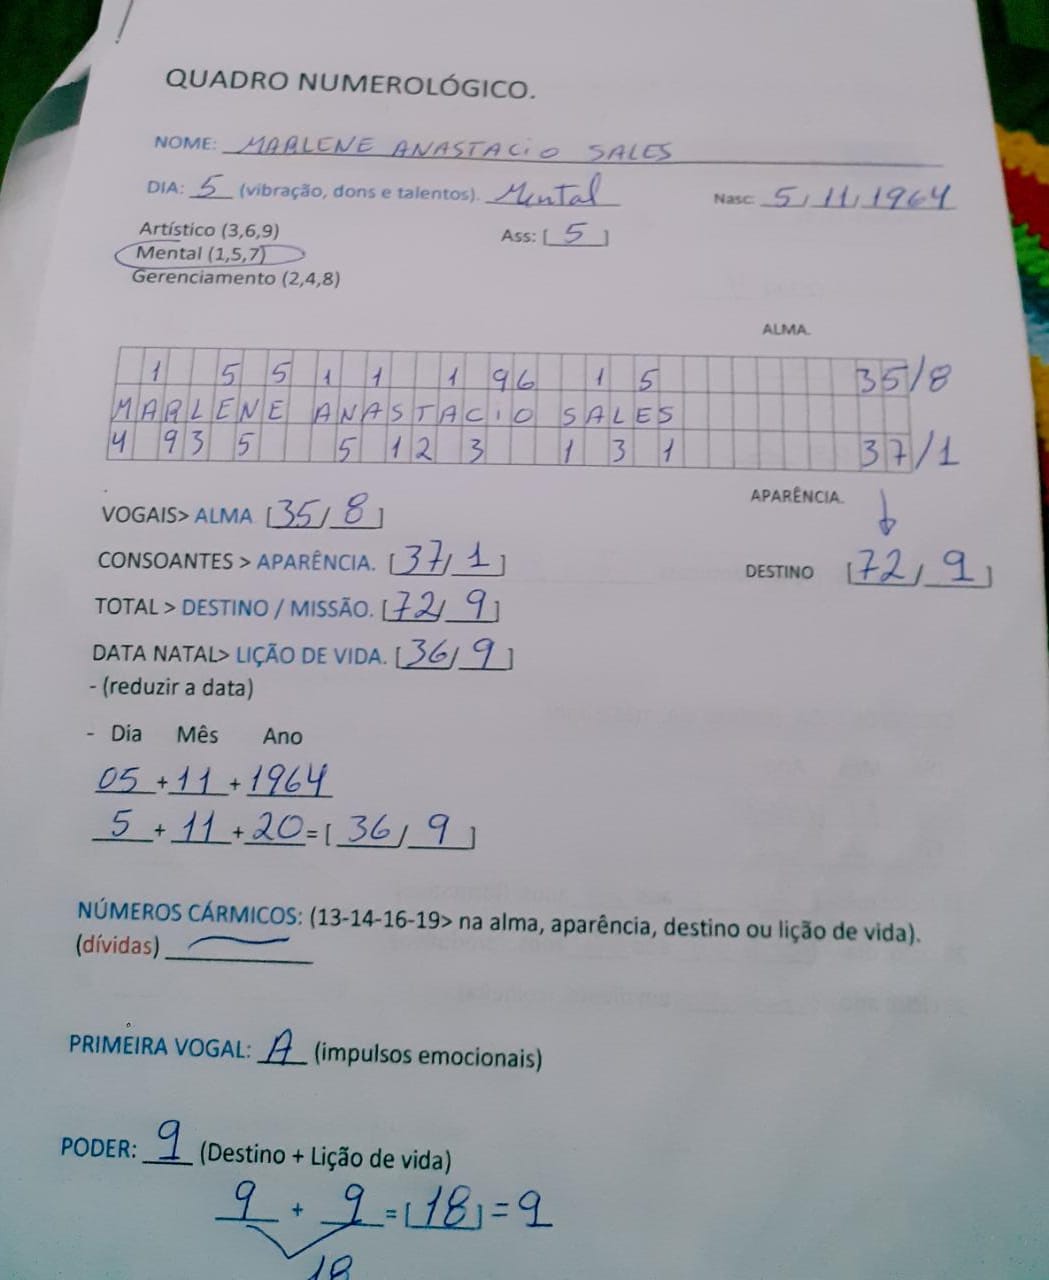 QUADRO NUMEROLÓGICO.
NOME: MARLENE ANASTACiO SALES
DIA: 5 (vibração, dons e talentos). Mental Nasc: 5/11/1964
Artístico (3,6,9) Ass: [ 5 ]
Mental (1,5,7)
Gerenciamento (2,4,8)
ALMA.
1 5 5 1 1 1 9 6 1 5 35/8
MARLENE ANASTACiO SALES
4 9 3 5 5 1 2 3 1 3 1 37/1
APARÊNCIA.
VOGAIS> ALMA [35/ 8 ]
CONSOANTES > APARÊNCIA. [37/ 1 ]
DESTINO [72/ 9 ]
TOTAL > DESTINO / MISSÃO. [72/ 9 ]
DATA NATAL> LIÇÃO DE VIDA. [36/ 9 ]
- (reduzir a data)
- Dia Mês Ano
05 + 11 + 1964
5 + 11 + 20 = [ 36 / 9 ]
NÚMEROS CÁRMICOS: (13-14-16-19> na alma, aparência, destino ou lição de vida).
(dívidas)
PRIMEIRA VOGAL: A (impulsos emocionais)
PODER: 9 (Destino + Lição de vida)
9 + 9 = [18] = 9
18